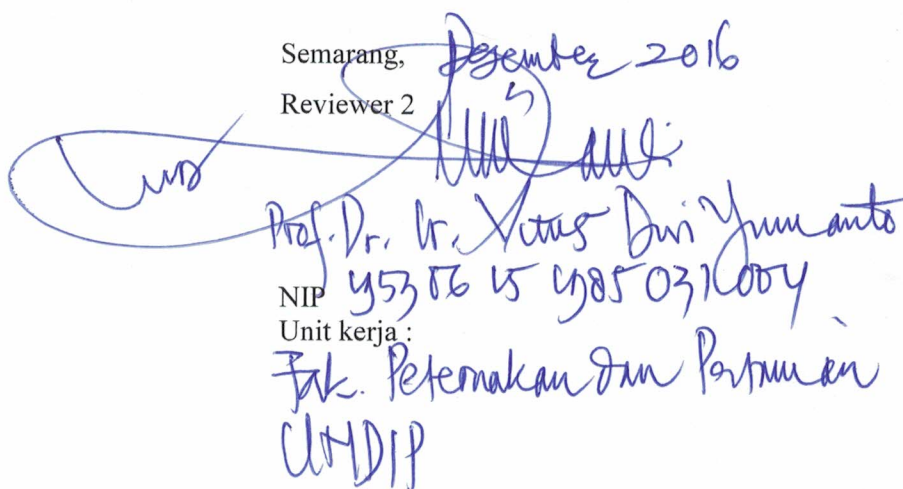 Semarang, Desember 2016
Reviewer 2
Prof. Dr. Ir. Vitus Dwi Yunianto
NIP 195306 15 198503 1 004
Unit kerja :
Fak. Peternakan dan Pertanian
UNDIP